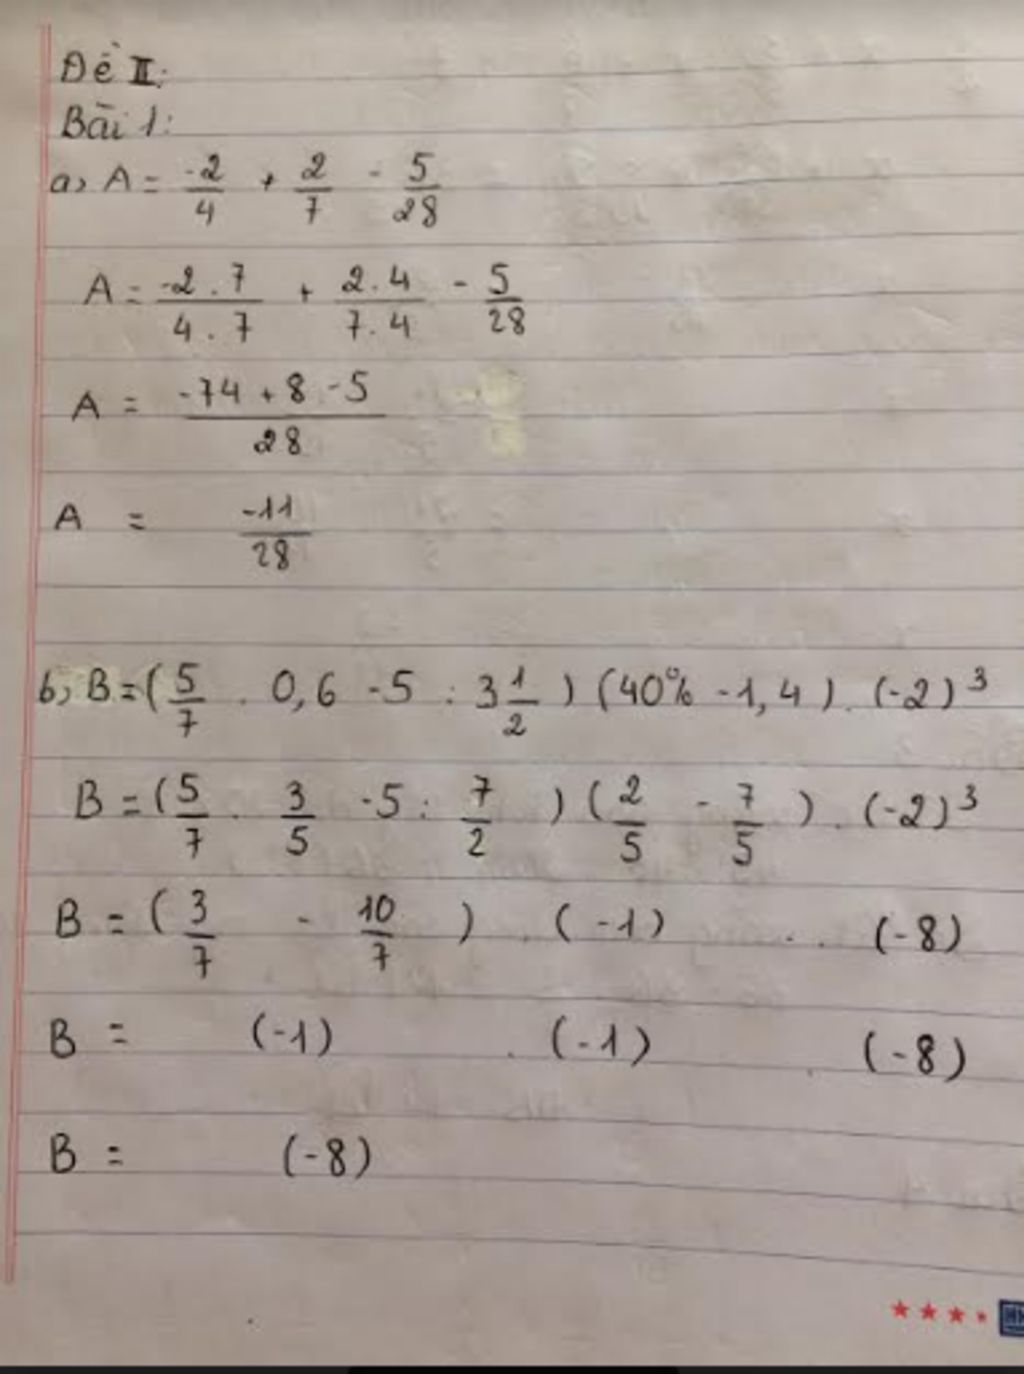 Đề II:
Bài 1:
a, A = -2/4 + 2/7 - 5/28
A = -2.7/4.7 + 2.4/7.4 - 5/28
A = -74 + 8 - 5/28
A = -11/28
b, B = (5/7 . 0,6 - 5 : 3 1/2) (40% - 1,4) . (-2)³
B = (5/7 . 3/5 - 5 : 7/2) (2/5 - 7/5) . (-2)³
B = (3/7 - 10/7) . (-1) . . (-8)
B = (-1) . (-1) . (-8)
B = (-8)